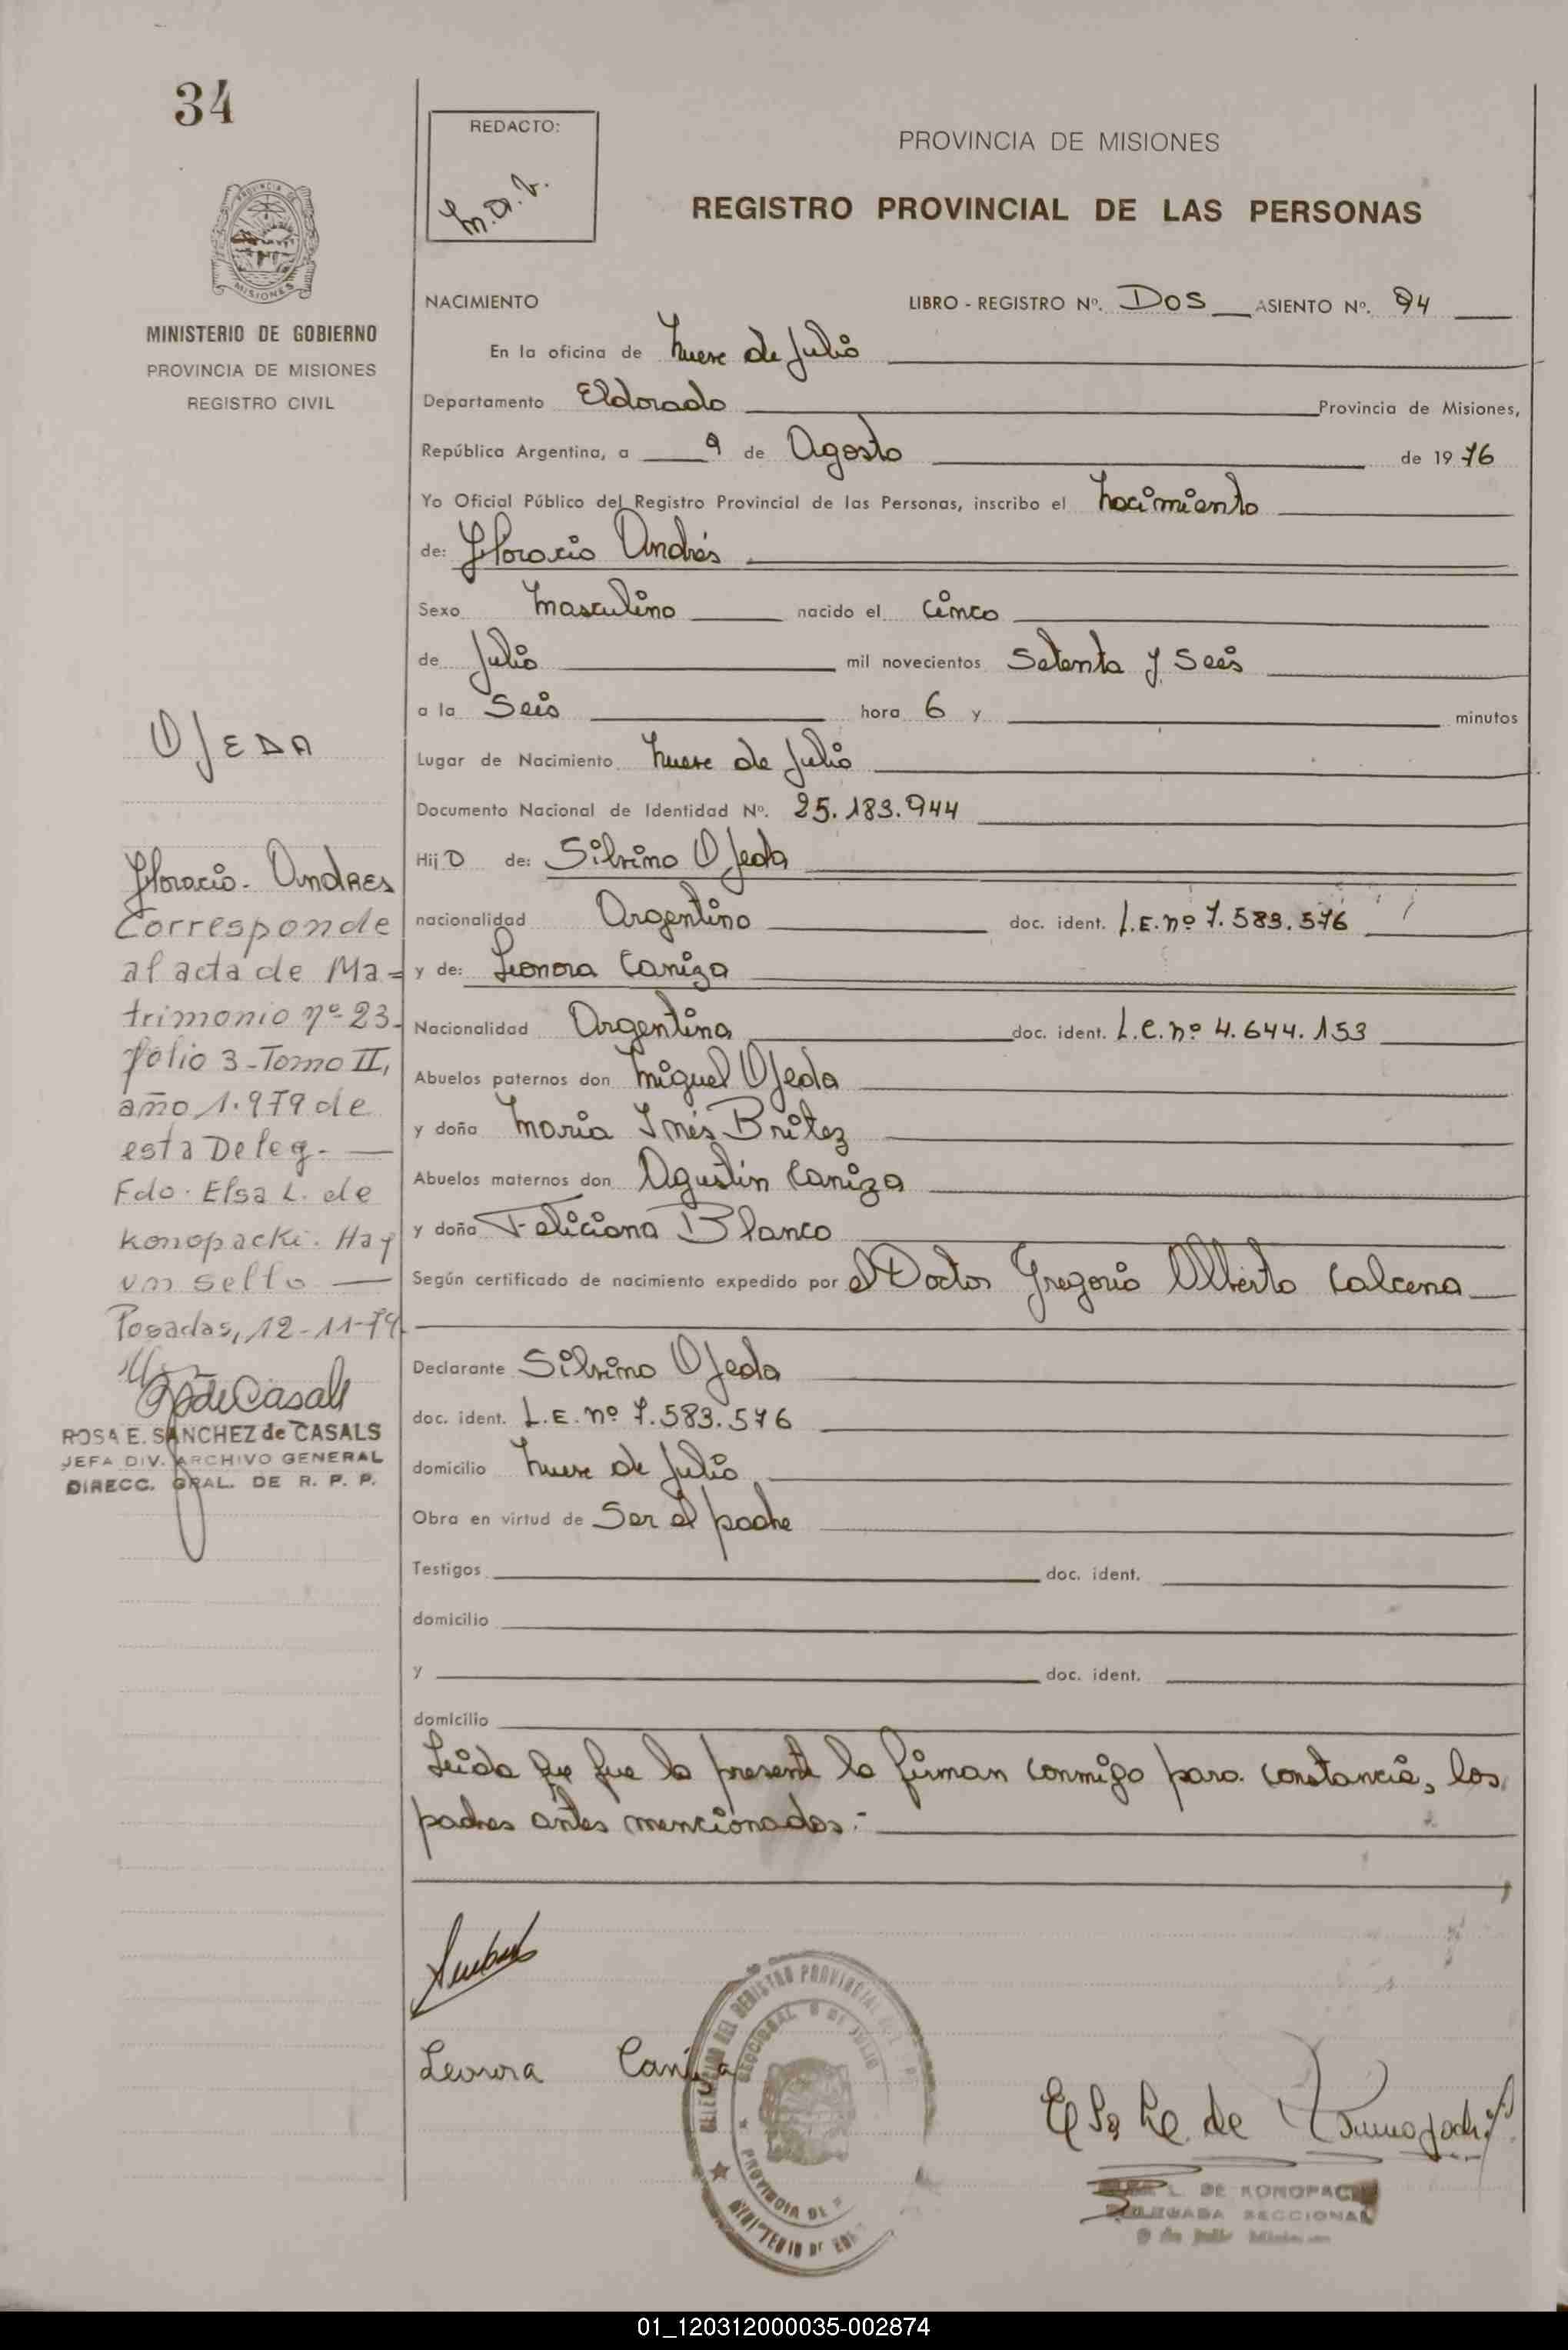 34
REDACTO:
PROVINCIA DE MISIONES
REGISTRO PROVINCIAL DE LAS PERSONAS
MISIONES
MINISTERIO DE GOBIERNO
PROVINCIA DE MISIONES
REGISTRO CIVIL
NACIMIENTO LIBRO - REGISTRO Nº. DOS ASIENTO Nº. 94
En la oficina de Nueve de Julio
Departamento Eldorado Provincia de Misiones,
República Argentina, a 9 de Agosto de 1976
Yo Oficial Público del Registro Provincial de las Personas, inscribo el Nacimiento
de: Horacio Andrés
Sexo Masculino nacido el cinco
de Julio mil novecientos Setenta y Seis
a la Seis hora 6 y minutos
Lugar de Nacimiento Nueve de Julio
Documento Nacional de Identidad Nº. 25.183.944
Hijo de: Silvino Ojeda
nacionalidad Argentino doc. ident. L.E. nº 7.583.576
y de: Leonora Caniza
Nacionalidad Argentina doc. ident. L.C. nº 4.644.153
Abuelos paternos don Miguel Ojeda
y doña Maria Inés Britez
Abuelos maternos don Agustín Caniza
y doña Feliciana Blanco
Según certificado de nacimiento expedido por el Doctor Gregorio Alberto Calcena
Declarante Silvino Ojeda
doc. ident. L.E. nº 7.583.576
domicilio Nueve de Julio
Obra en virtud de Ser el padre
Testigos doc. ident.
domicilio
y doc. ident.
domicilio
Leida que fue la presente la firman conmigo para constancia, los
padres antes mencionados:-
OJEDA
Horacio - Andres
Corresponde
al acta de Ma-
trimonio nº 23-
folio 3 - Tomo II,
año 1.979 de
esta Deleg. -
Fdo. Elsa L. de
Konopacki. Hay
un sello
Posadas, 12-11-79.
de Casals
ROSA E. SANCHEZ de CASALS
JEFA DIV. ARCHIVO GENERAL
DIRECC. GRAL. DE R. P. P.
Leonora Caniza
DELEGACION DEL REGISTRO PROVINCIAL DE
SECCIONAL 9 DE JULIO
PROVINCIA DE
MINISTERIO DE
Elsa L. de Konopacki
L. DE KONOPACKI
DELEGADA SECCIONAL
9 de Julio Misiones
01_120312000035-002874